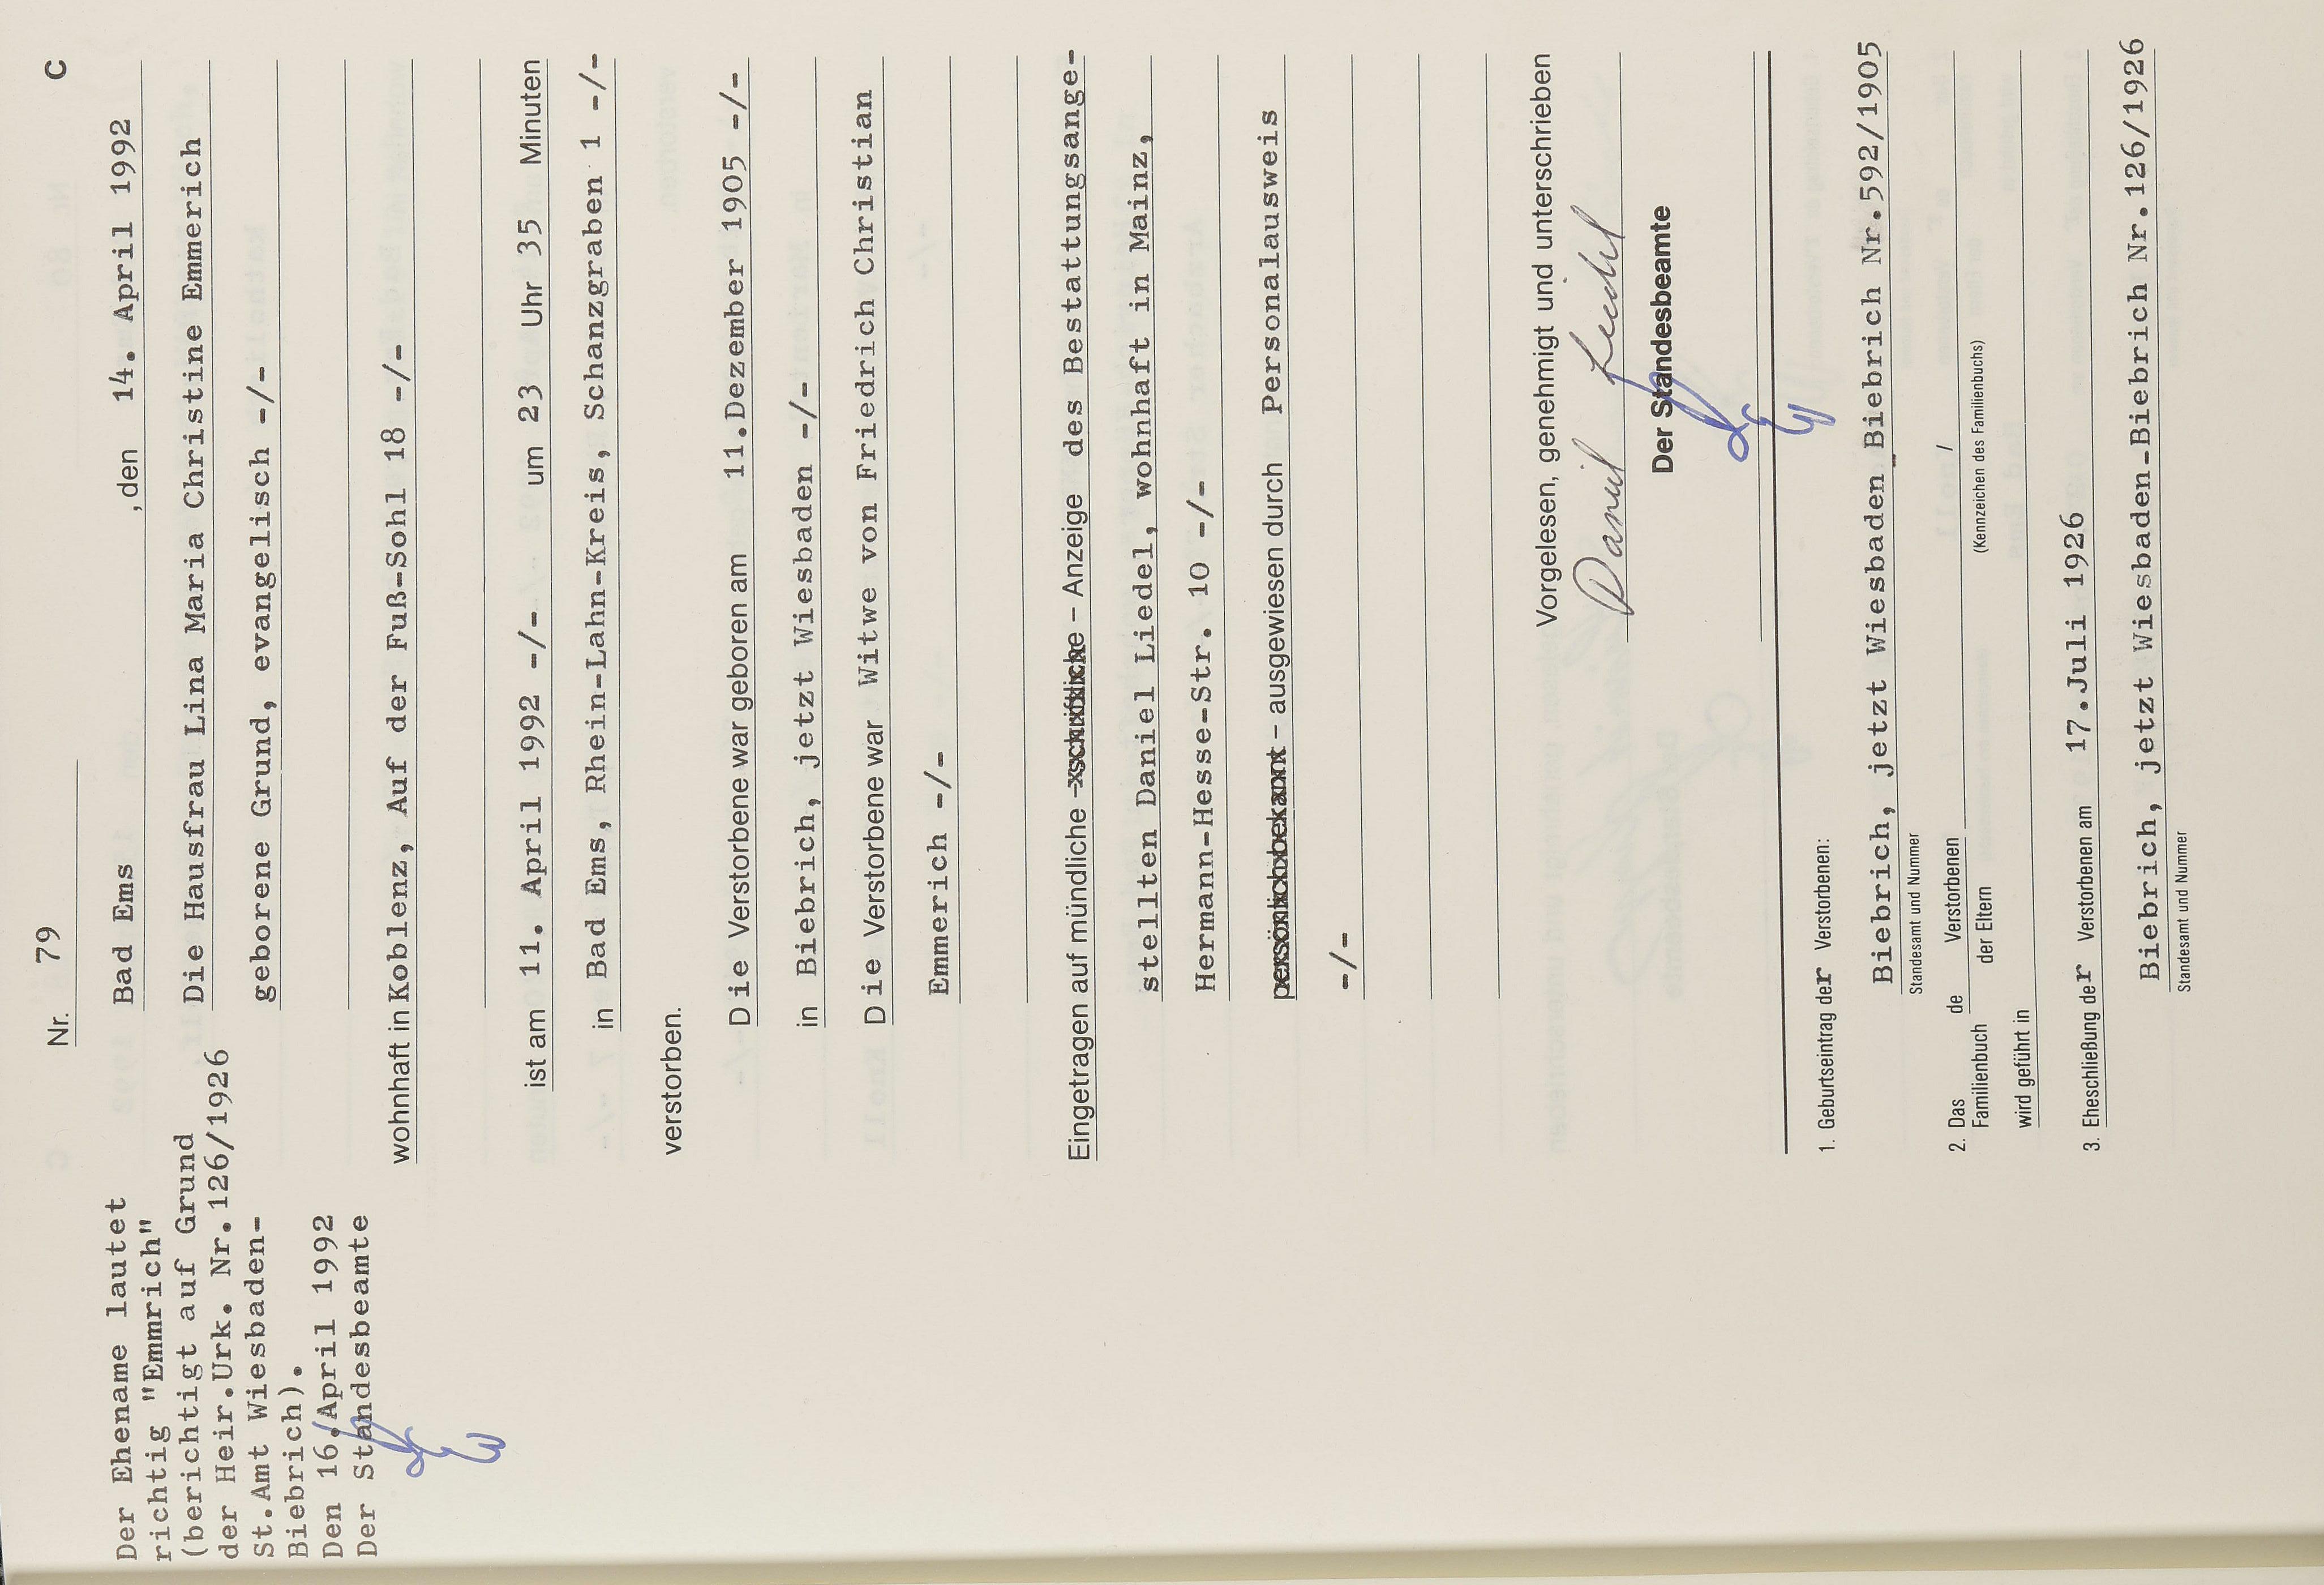 Nr. 79
C
Bad Ems , den 14. April 1992
Die Hausfrau Lina Maria Christine Emmerich
geborene Grund, evangelisch -/-
wohnhaft in Koblenz, Auf der Fuß-Sohl 18 -/-
ist am 11. April 1992 -/- um 23 Uhr 35 Minuten
in Bad Ems, Rhein-Lahn-Kreis, Schanzgraben 1 -/-
verstorben.
Die Verstorbene war geboren am 11.Dezember 1905 -/-
in Biebrich, jetzt Wiesbaden -/-
Die Verstorbene war Witwe von Friedrich Christian
Emmerich -/-
Eingetragen auf mündliche – schriftliche – Anzeige des Bestattungsange-
stellten Daniel Liedel, wohnhaft in Mainz,
Hermann-Hesse-Str. 10 -/-
persönlich bekannt – ausgewiesen durch Personalausweis
-/-
Vorgelesen, genehmigt und unterschrieben
Daniel Liedel
Der Standesbeamte
Der Ehename lautet
richtig "Emmrich"
(berichtigt auf Grund
der Heir.Urk. Nr.126/1926
St.Amt Wiesbaden-
Biebrich).
Den 16.April 1992
Der Standesbeamte
1. Geburtseintrag der Verstorbenen:
Biebrich, jetzt Wiesbaden-Biebrich Nr.592/1905
Standesamt und Nummer
2. Das Familienbuch de Verstorbenen /
der Eltern (Kennzeichen des Familienbuchs)
wird geführt in
3. Eheschließung der Verstorbenen am 17.Juli 1926
Biebrich, jetzt Wiesbaden-Biebrich Nr.126/1926
Standesamt und Nummer